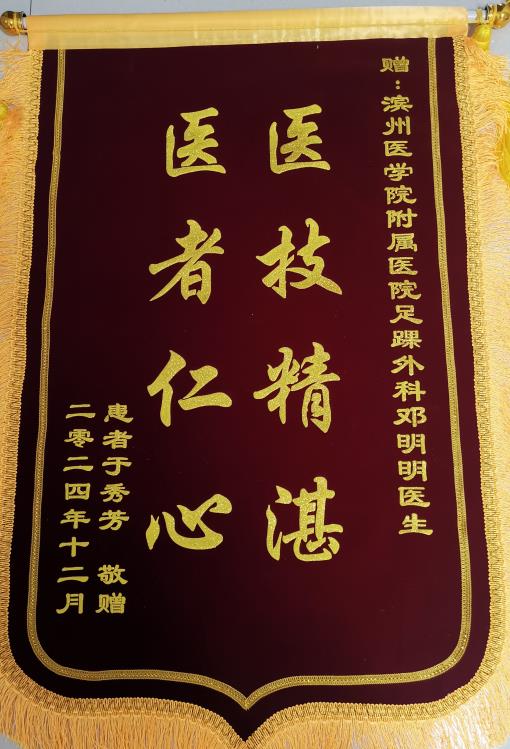 赠：滨州医学院附属医院足踝外科邓明明医生
医技精湛
医者仁心
患者于秀芳 敬赠
二零二四年十二月